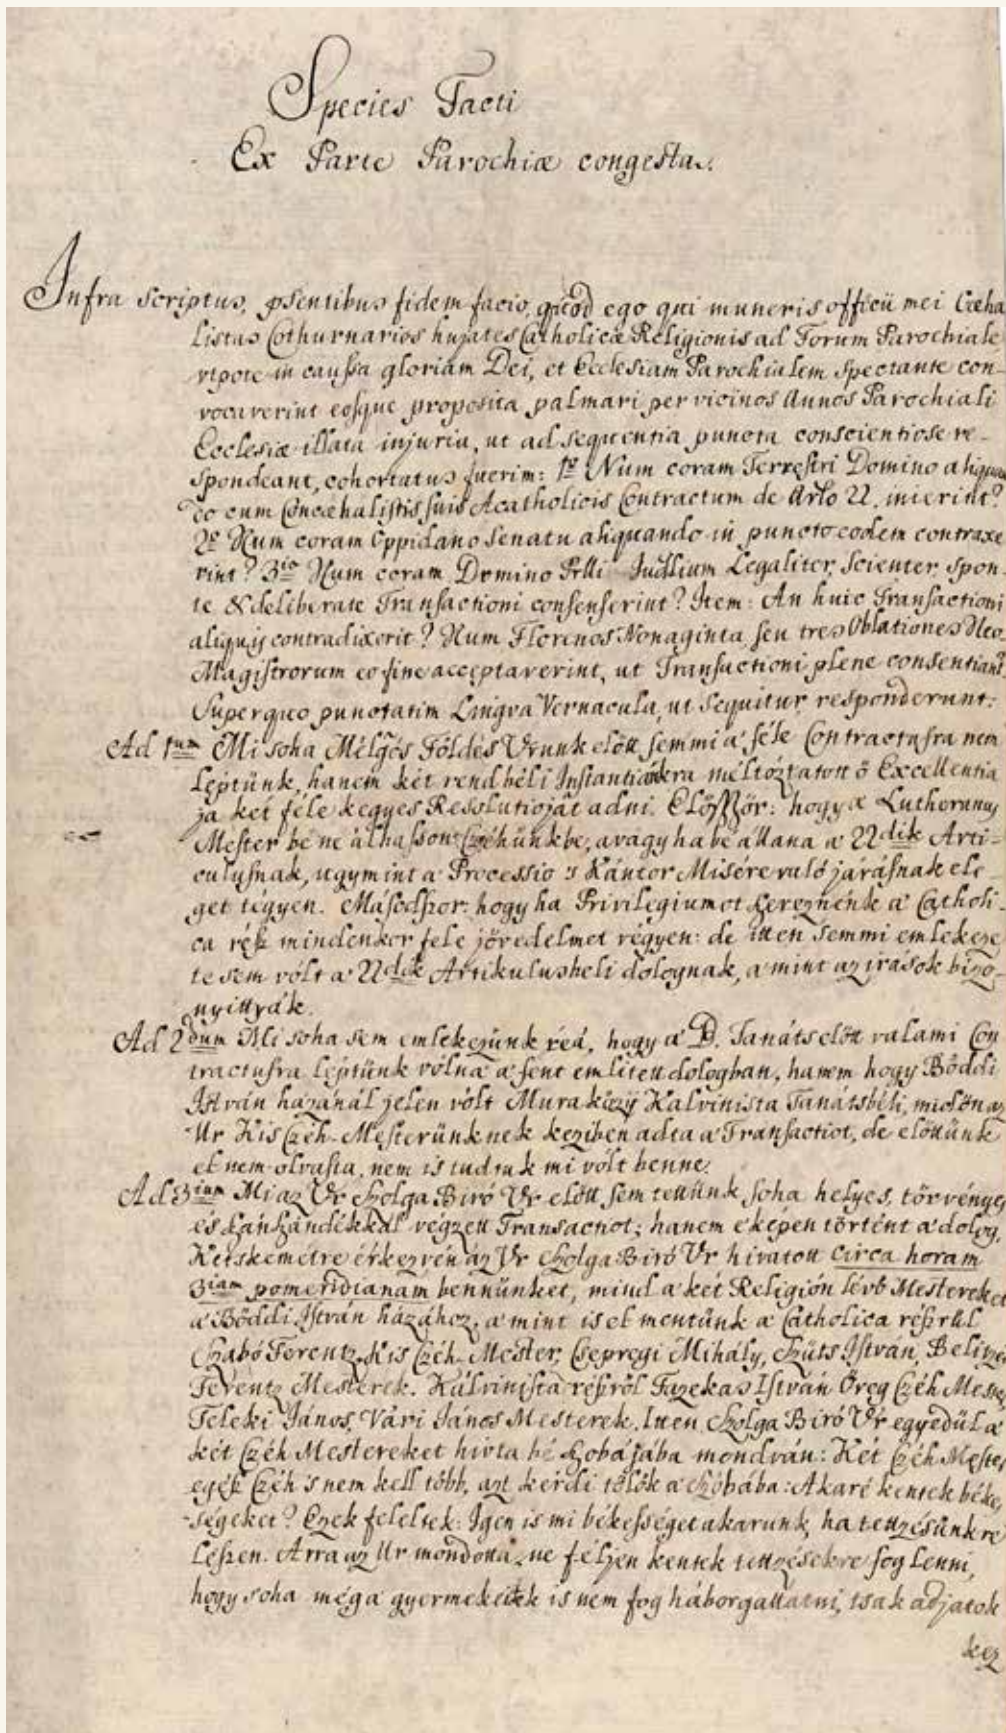 Species Facti
Ex Parte Parochiæ congesta.
Infra scriptus, psentibus fidem facio, quod ego qui muneris officii mei Cæha
listas Cothurnarios hujates Catholicæ Religionis ad Forum Parochiale
utpote in caussa gloriam Dei, et Ecclesiam Parochialem spectante con-
vocaverint eosque proposita palmari per vicinos Annos Parochiali
Ecclesiæ illata injuria, ut ad sequentia puncta conscientiose re-
spondeant, cohortatus fuerim: 1º Num coram Terrestri Domino aliquan
do cum Concæhalistis suis Acatholicis Contractum de Arlo 22. inierint?
2º Num coram Oppidano Senatu aliquando in puncto eodem contraxe
rint? 3io Num coram Domino Judlium Legaliter, Scienter, Spon-
te & deliberate Transactioni consenserint? Item: An huic Transactioni
aliquis contradixerit? Num Florenos Nonaginta seu tres Oblationes Neo
Magistrorum eo fine acceptaverint, ut Transactioni plene consentiant.
Superquo punctatim Lingva Vernacula, ut sequitur responderunt:
Ad 1um Mi soha Mélgos Földes Urunk elött semmi a' féle Contractusra nem
léptünk, hanem két rendbéli Instantiánkra méltóztatott ő Excellentia
ja két féle kegyes Resolutioját adni. Elösször: hogy a Lutheranus
Mester bé ne álhasson Czéhünkbe, avagy ha bé állana a 22dik Arti-
culusnak, ugymint a Processio s Kántor Misére való járásnak ele-
get tégyen. Másodszor: hogy ha Privilegiumot szereznénk a Catholi-
ca rész mindenkor fele jövedelmet végyen: de itten semmi emlekeze
te sem vólt a 22dik Artikulusbeli dolognak, a mint az irások bizo-
nyittyák.
Ad 2dum Mi soha sem emlekezünk reá, hogy a' D. Tanáts elött valami Con
tractusra léptünk vólna a fent emlitett dologban, hanem hogy Böddi
István házánál jelen vólt Muraközy Kálvinista Tanátsbéli, midön az
Ur Kis Czéh-Mesterünknek keziben adta a Transactiot, de elöttünk
el nem olvasta, nem is tudtuk mi vólt benne.
Ad 3ium Mi az Ur Szolga Biró Ur elött sem tettünk soha helyes, törvényes
és szánszándékkál végzett Transactiot; hanem eképen történt a dolog.
Ketskemétre érkezvén az Ur Szolga Biró Ur hivatott circa horam
3iam pomeridianam bennünket, mind a' két Religión lévő Mestereket
a Böddi István házához, a mint is el mentünk a Catholica részrül
Szabó Ferentz Kis Czéh-Mester, Csepregi Mihály, Szüts István,
Ferentz Mesterek. Kálvinista részről Fazekas István Öreg Czéh Mester
Teleki János, Vári János Mesterek. Itten Szolga Biró Ur egyedül a
két Czéh Mestereket hivta bé szobájába mondván: Két Czéh Mester
egész Czéh is nem kell több, azt kérdi tölök a szobába: Akaré kentek béke,
ségeket? Ezek feleltek: Igen is mi békességet akarunk, ha tettzésünkre
lészen. Arra az Ur mondotta, ne féljen kentek tettzésekre fog lenni,
hogy soha még a gyermekeitek is nem fog háborgattatni, tsak adjatok
kez